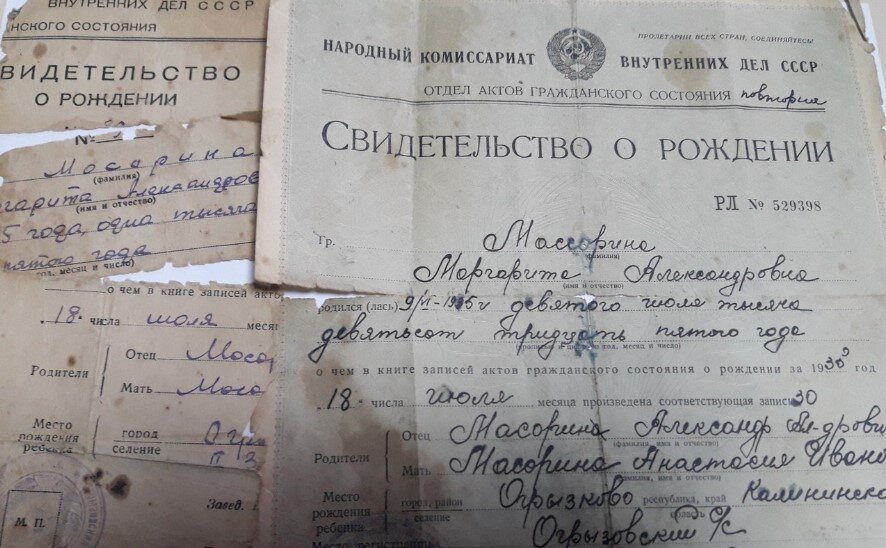 ВНУТРЕННИХ ДЕЛ СССР
НСКОГО СОСТОЯНИЯ
ВИДЕТЕЛЬСТВО
О РОЖДЕНИИ
№
Мосорина
(фамилия)
гарита Александров
(имя и отчество)
5 года, одна тысяча
пятого года
год, месяц и число)
о чем в книге записей акто
18 числа июля месяц
Отец Мосо
Родители
Мать Мосо
Место
рождения
ребенка
город
селение
Завед.
М. П.
ПРОЛЕТАРИИ ВСЕХ СТРАН, СОЕДИНЯЙТЕСЬ!
НАРОДНЫЙ КОМИССАРИАТ ВНУТРЕННИХ ДЕЛ СССР
ОТДЕЛ АКТОВ ГРАЖДАНСКОГО СОСТОЯНИЯ повторна
СВИДЕТЕЛЬСТВО О РОЖДЕНИИ
РЛ № 529398
Гр. Массорина
(фамилия)
Моргарита Александровна
(имя и отчество)
родился (лась) девятого июля тысяча
девятьсот тридцать пятого года
о чем в книге записей актов гражданского состояния о рождении за 193 год
18 числа июля месяца произведена соответствующая запись 30
Отец Масорина Александр
(фамилия, имя и отчество)
Родители
Мать Масорина Анастасия Ивано
(фамилия, имя и отчество)
Место
рождения
ребенка
город, район
селение
Огрызково
республика, край
область
Калининска
Огрызовский с/с
Место регистрации